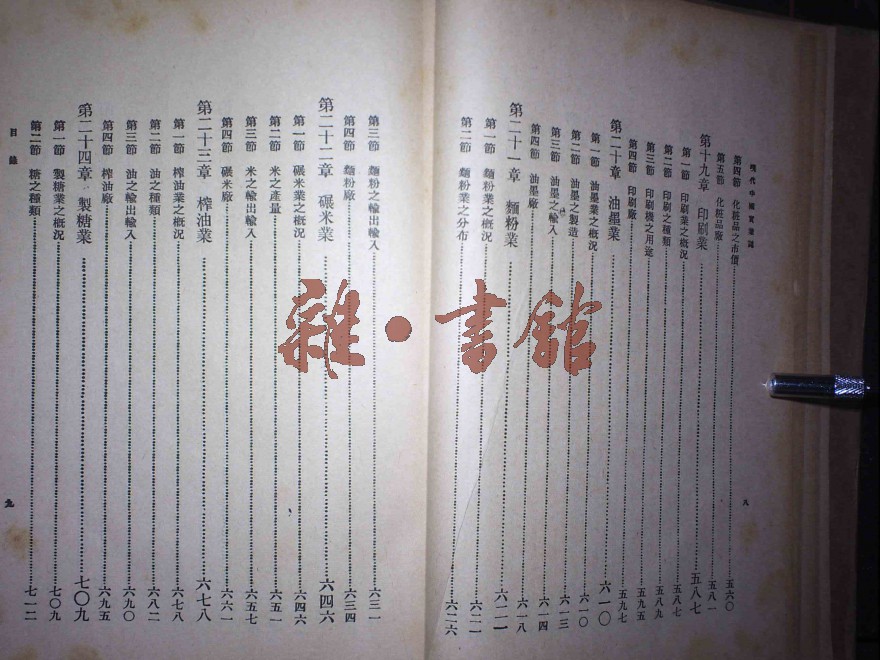 現代中國實業誌
第四節 化粧品之市價 五六〇
第五節 化粧品廠 五八一
第十九章 印刷業 五八七
第一節 印刷業之概況 五八七
第二節 印刷之種類 五八九
第三節 印刷機之用途 五九五
第四節 印刷廠 五九七
第二十章 油墨業 六一〇
第一節 油墨業之概況 六一〇
第二節 油墨之製造 六一三
第三節 油墨之輸入 六一四
第四節 油墨廠 六一八
第二十一章 麵粉業 六二一
第一節 麵粉業之概況 六二一
第二節 麵粉業之分布 六二六
八
第三節 麵粉之輸出輸入 六三一
第四節 麵粉廠 六三四
第二十二章 碾米業 六四六
第一節 碾米業之概況 六四六
第二節 米之產量 六五一
第三節 米之輸出輸入 六五七
第四節 碾米廠 六六一
第二十三章 榨油業 六七八
第一節 榨油業之概況 六七八
第二節 油之種類 六八二
第三節 油之輸出輸入 六九〇
第四節 榨油廠 六九五
第二十四章 製糖業 七〇九
第一節 製糖業之概況 七〇九
第二節 糖之種類 七一二
目錄
九
雜·書館